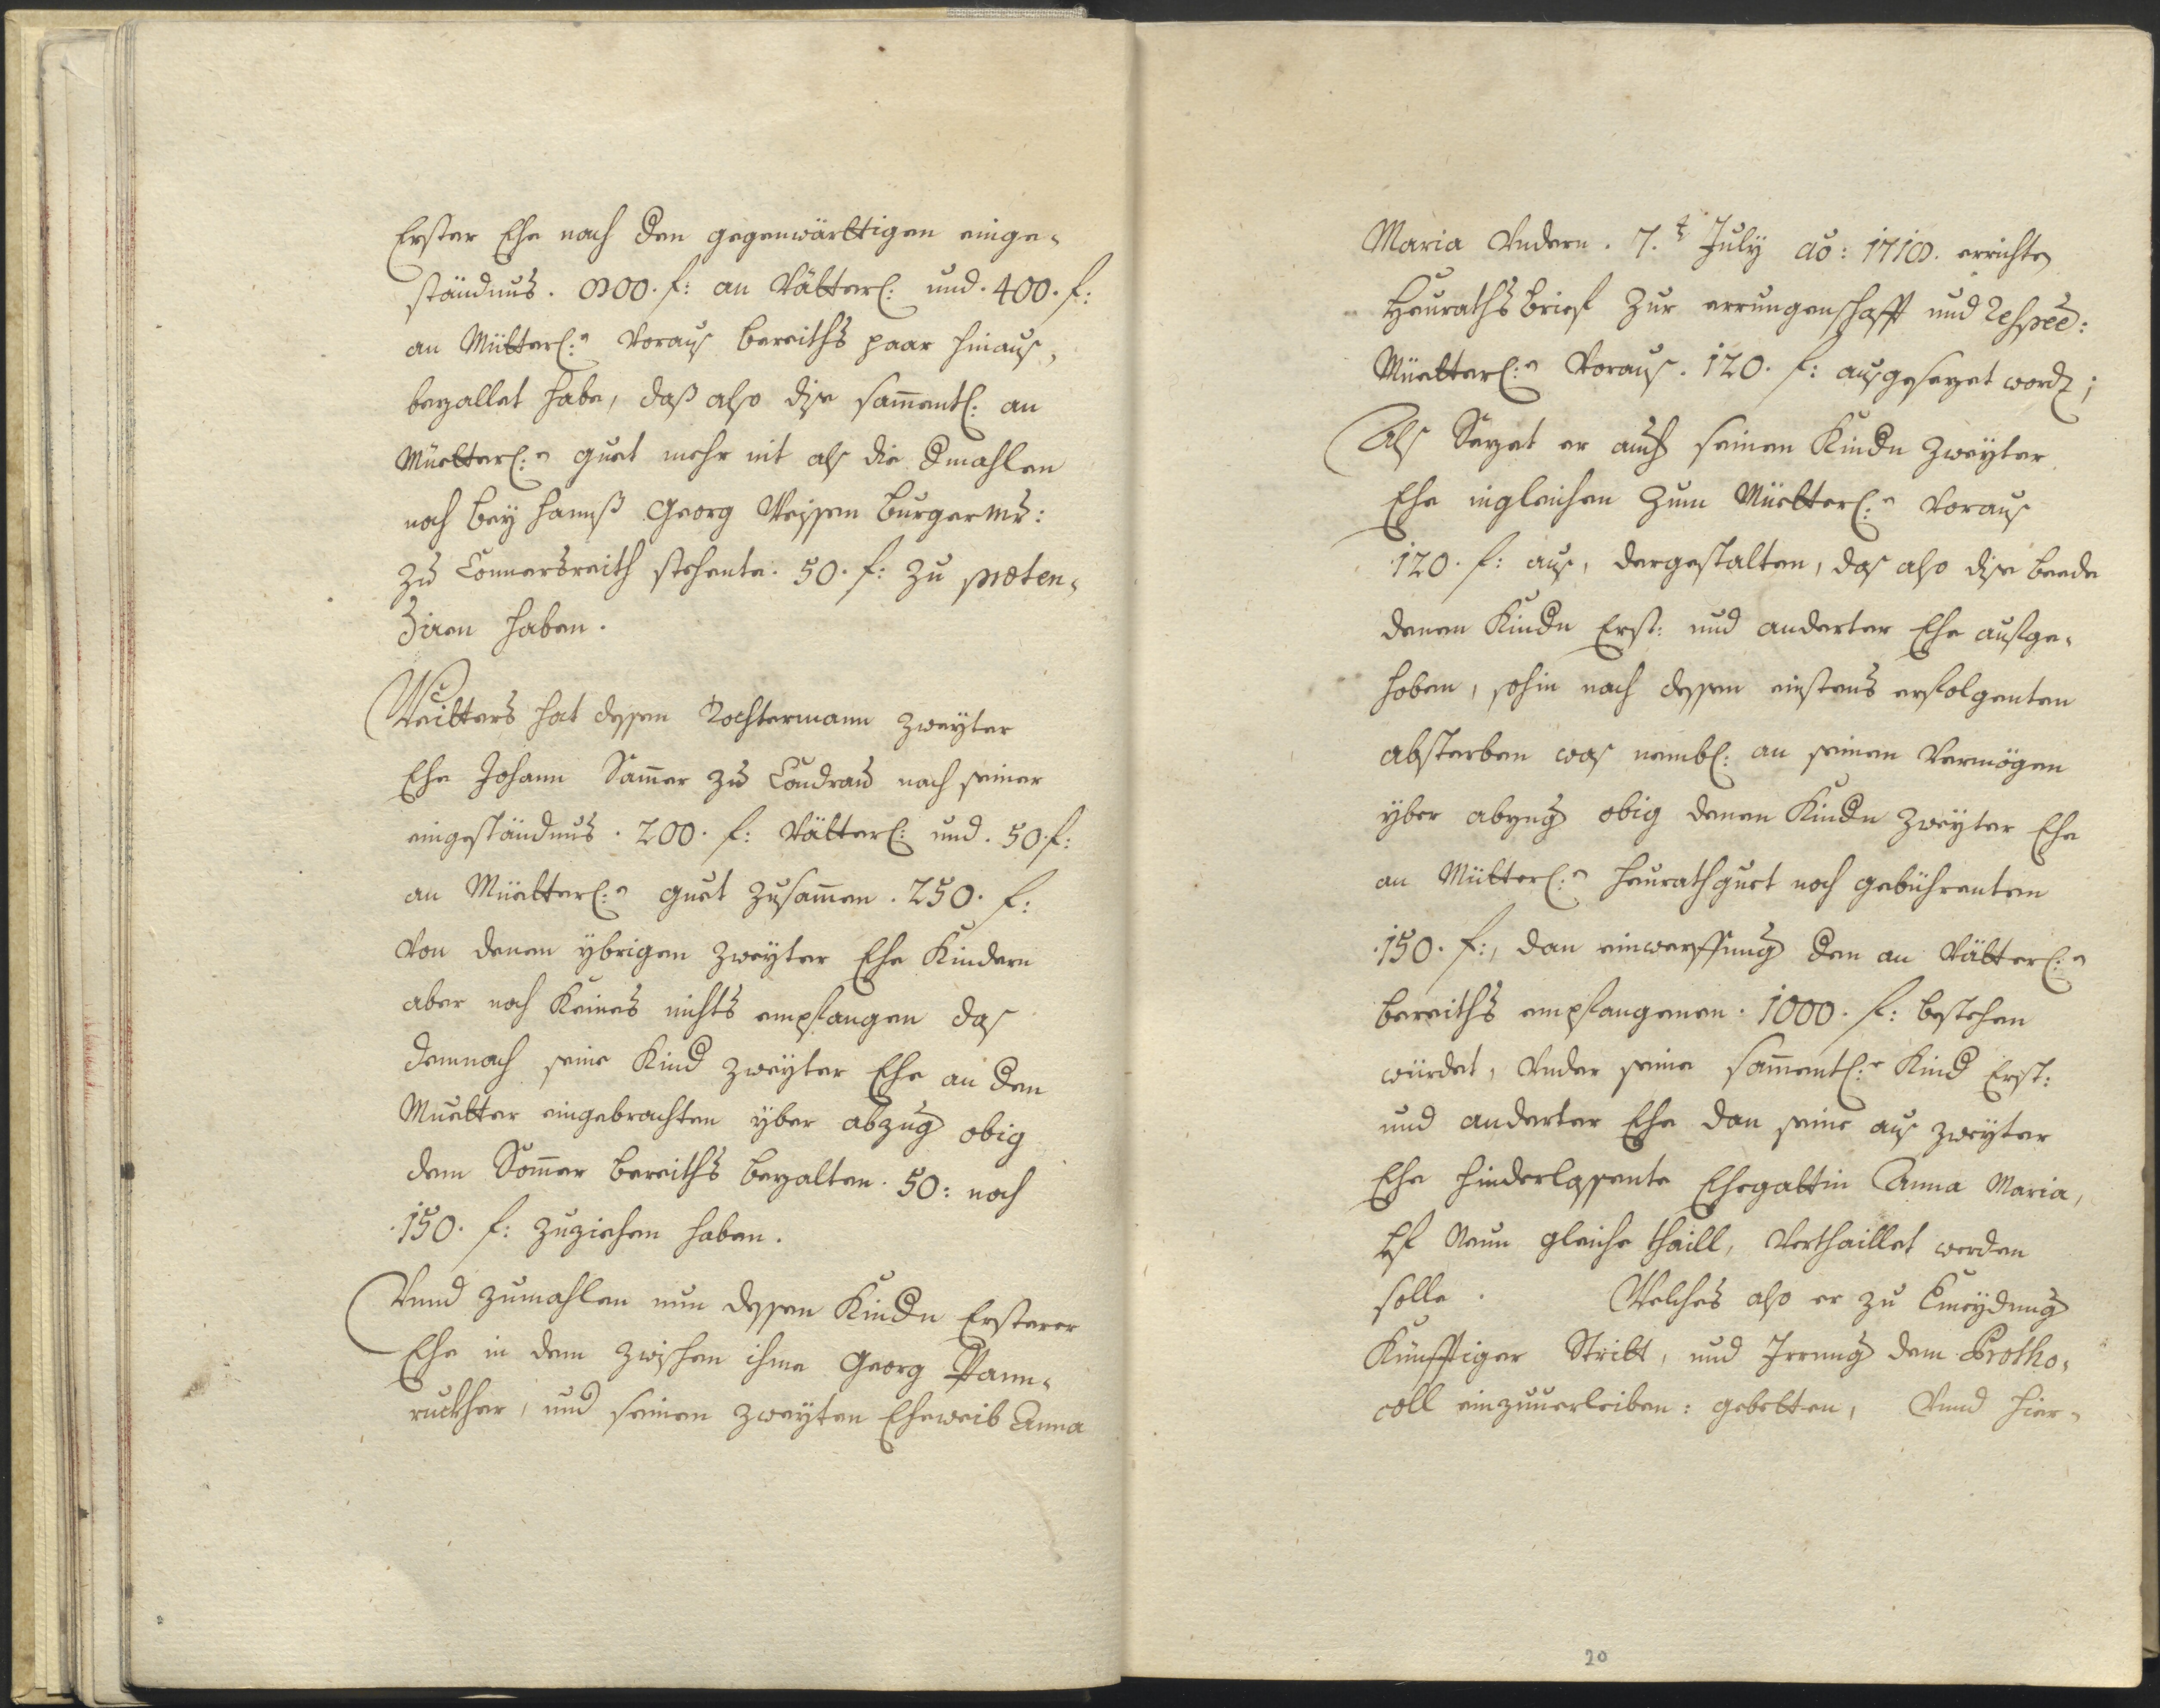 Erster Ehe nach den gegenwärttigen einge-
ständnus. 800. f: an Vätterl: und. 400. f:
an Mütterl:n Voraus bereiths paar hinaus,
bezallet habe, daß also dise sam̄entl: an
Müetterl:n guet mehr nit als die dmahlen
noch bey Hannß Georg Weissen Burgermr:
zu Connersreith stehente. 50. f: zu præten-
ziren haben.
Weitters hat dessen Tochtermann zweyter
Ehe Johann Som̄er zu Condrau nach seiner
eingeständnus. 200. f: Vätterl: und. 50. f:
an Müetterl:n guet zusam̄en. 250. f:
Von denen ybrigen zweyter Ehe Kindern
aber noch Keines nichts empfangen das
demnach seine Kind zweyter Ehe an den
Muetter eingebrachten yber abzug obig
dem Som̄er bereiths bezalten. 50: noch
.150. f: zuziehen haben.
Vnnd zumahlen nun dessen Kindn Ersterer
Ehe in dem zwischen ihme Georg Pann-
ruckher, und seinen zweyten Eheweib Anna
Maria Vndern. 7.t July ao: 1718. errichten
Heuraths Brief zur errungenschafft und Respēe:
Müetterl:n Voraus. 120. f: ausgesezet word;
Als Sezet er auch seinen Kindn zweyter
Ehe ingleichen zum Müetterl:n Voraus
120. f: aus, dergestalten, das also dise beede
denen Kindn Erst: und anderter Ehe aufge-
hoben, sohin nach dessen einstens erfolgenten
absterben was nembl: an seinem Vermögen
yber abzug obig denen Kindn zweyter Ehe
an Mütterl:n heurathguet noch gebührenten
.150. f:, dan einwerffung den an Vätterl:n
bereiths empfangenen. 1000. f: bestehen
würdet, Vnder seine sam̄entl:e Kind Erst:
und anderter Ehe dan seine aus zweyter
Ehe hinderlassente Ehegattin Anna Maria,
Neun gleiche thaill, Verthaillet werden
solle. Welches also er zu
Künfftiger Stritt, und Irrung dem Protho-
coll einzuuerleiben: gebetten, Vnnd hier-
20